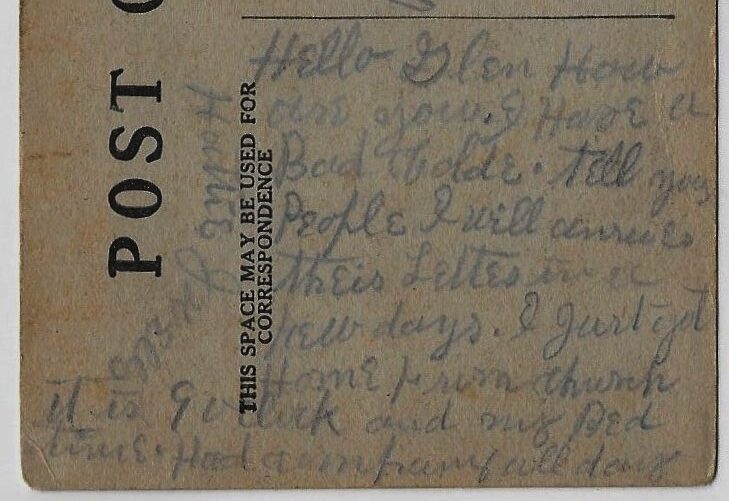 POST C
THIS SPACE MAY BE USED FOR
CORRESPONDENCE
Hello Glen How
are you. I Have a
Bad Colde. tell you
People I will answer
their Letter in a
few days. I Just got
Home from church
it is 9 o clock and my Bed
time. Had company all day